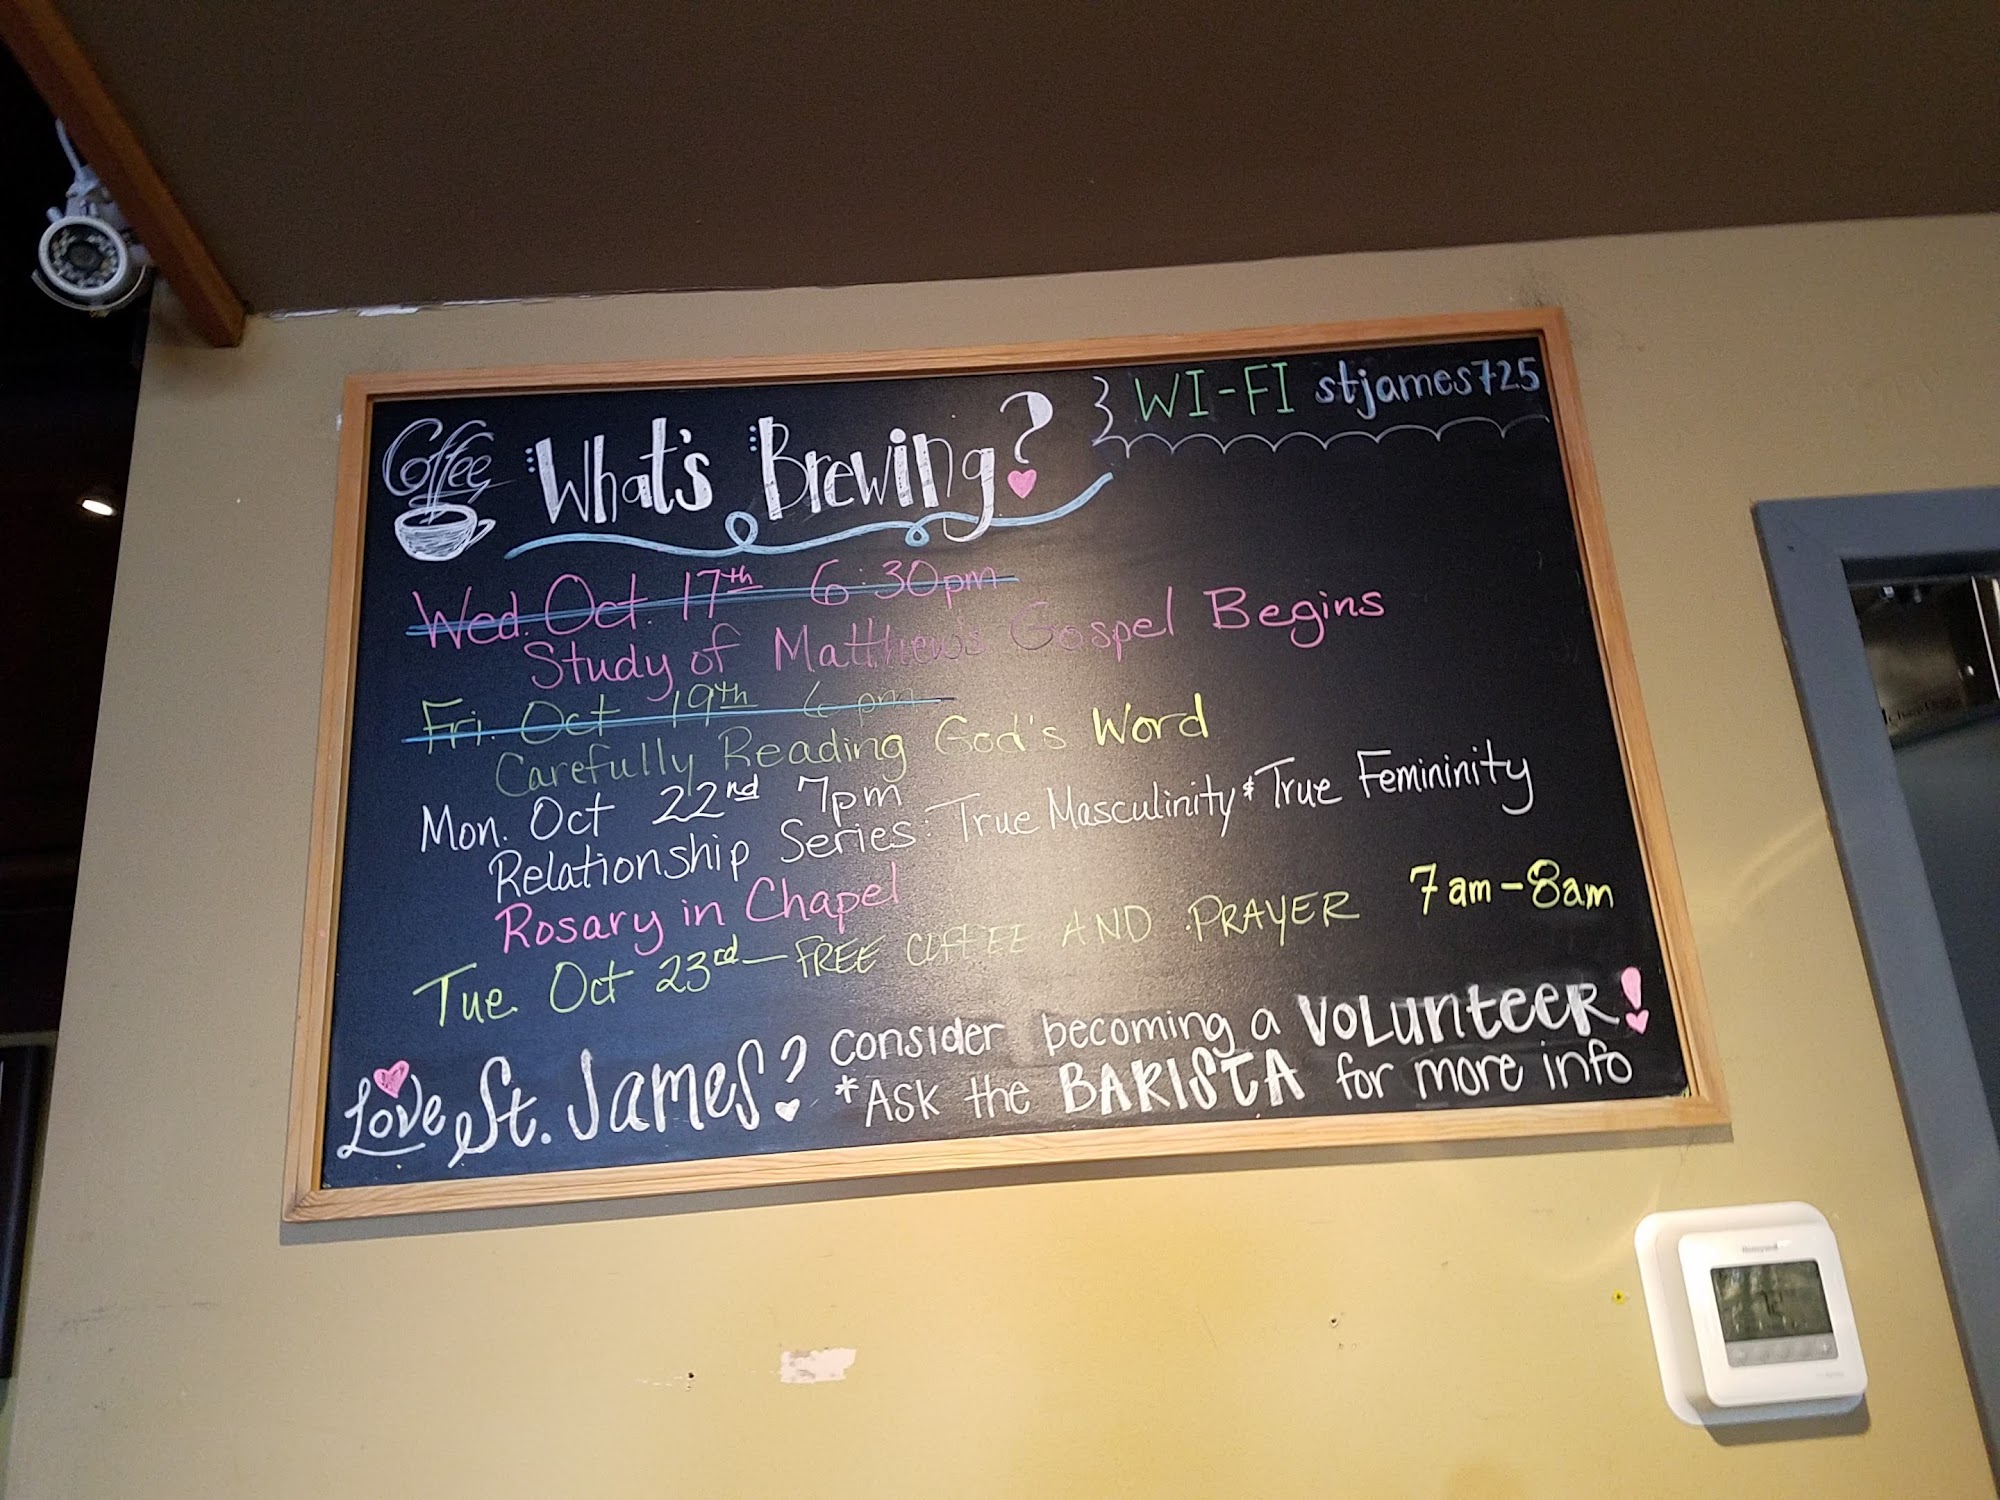 Coffee
What's Brewing?
WI-FI stjames725
Wed. Oct. 17th 6:30pm
Study of Matthews Gospel Begins
Fri. Oct 19th 6pm
Carefully Reading God's Word
Mon. Oct 22nd 7pm
Relationship Series: True Masculinity & True Femininity
Rosary in Chapel
Tue. Oct 23rd - FREE COFFEE AND PRAYER 7am-8am
Love St. James? Consider becoming a VOLUNTEER!
*Ask the BARISTA for more info
Honeywell